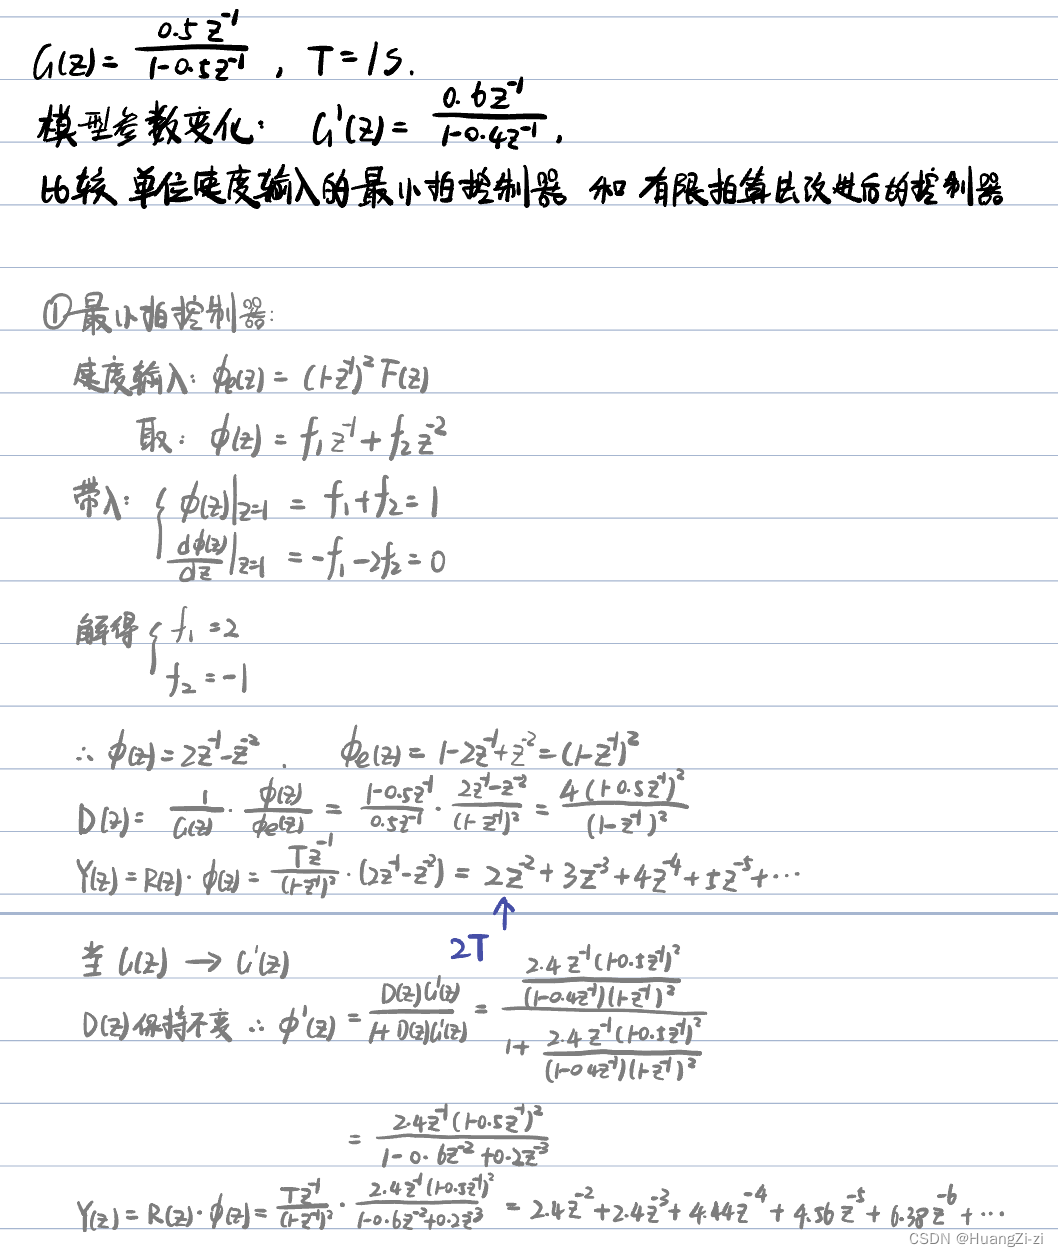 G(z) = 0.5z⁻¹ / (1-0.5z⁻¹) , T = 1s.
模型参数变化: G'(z) = 0.6z⁻¹ / (1-0.4z⁻¹) .
比较 单位速度输入的最小拍控制器 和 有限拍算法改进后的控制器
①最小拍控制器:
速度输入: φe(z) = (1-z⁻¹)² F(z)
取: φ(z) = f₁z⁻¹ + f₂z⁻²
带入: { φ(z)|z=1 = f₁+f₂ = 1
dφ(z)/dz |z=1 = -f₁-2f₂ = 0
解得 { f₁ = 2
f₂ = -1
∴ φ(z) = 2z⁻¹-z⁻² . φe(z) = 1-2z⁻¹+z⁻² = (1-z⁻¹)²
D(z) = 1/G(z) · φ(z)/φe(z) = (1-0.5z⁻¹)/(0.5z⁻¹) · (2z⁻¹-z⁻²)/(1-z⁻¹)² = 4(1-0.5z⁻¹)²/(1-z⁻¹)²
Y(z) = R(z)·φ(z) = Tz⁻¹/(1-z⁻¹)² · (2z⁻¹-z⁻²) = 2z⁻² + 3z⁻³ + 4z⁻⁴ + 5z⁻⁵ + ···
↑
2T
当 G(z) → G'(z)
D(z)保持不变 ∴ φ'(z) = D(z)G'(z)/(1+D(z)G'(z)) = [2.4z⁻¹(1-0.5z⁻¹)²/((1-0.4z⁻¹)(1-z⁻¹)²)] / [1+ 2.4z⁻¹(1-0.5z⁻¹)²/((1-0.4z⁻¹)(1-z⁻¹)²)]
= 2.4z⁻¹(1-0.5z⁻¹)² / (1-0.6z⁻²+0.2z⁻³)
Y(z) = R(z)·φ(z) = Tz⁻¹/(1-z⁻¹)² · 2.4z⁻¹(1-0.5z⁻¹)²/(1-0.6z⁻²+0.2z⁻³) = 2.4z⁻² + 2.4z⁻³ + 4.44z⁻⁴ + 4.56z⁻⁵ + 6.38z⁻⁶ + ···
CSDN @HuangZi-zi